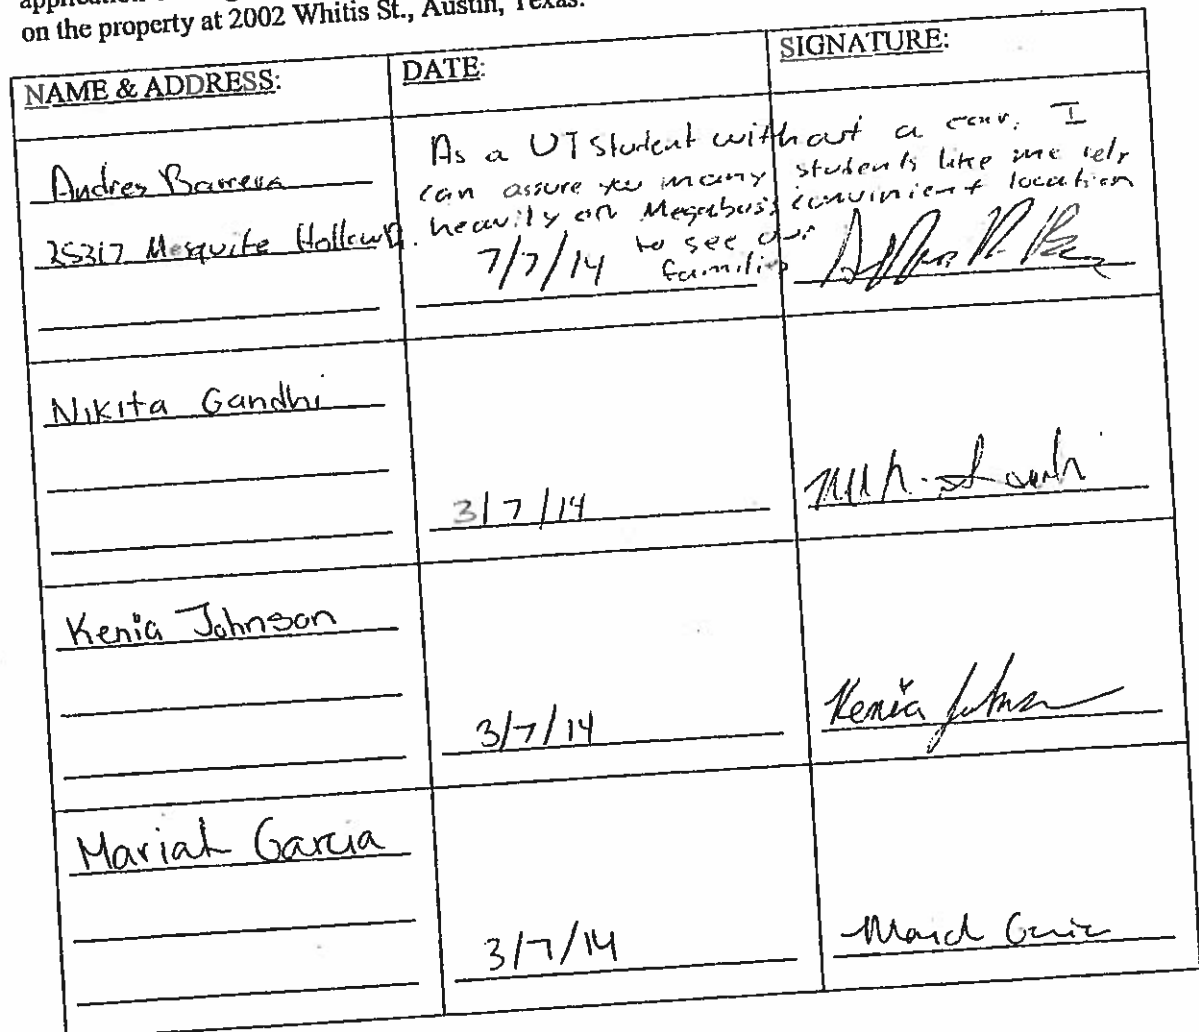 on the property at 2002 Whitis St., Austin, Texas.
NAME & ADDRESS:
DATE:
SIGNATURE:
Andres Barrera
25317 Mesquite Hollow
As a UT Student without a car, I
can assure you many students like me rely
heavily on Megabus's convinient location
to see our
families
7/7/14
Nikita Gandhi
3/7/14
Kenia Johnson
3/7/14
Kenia Johnson
Mariah Garcia
3/7/14